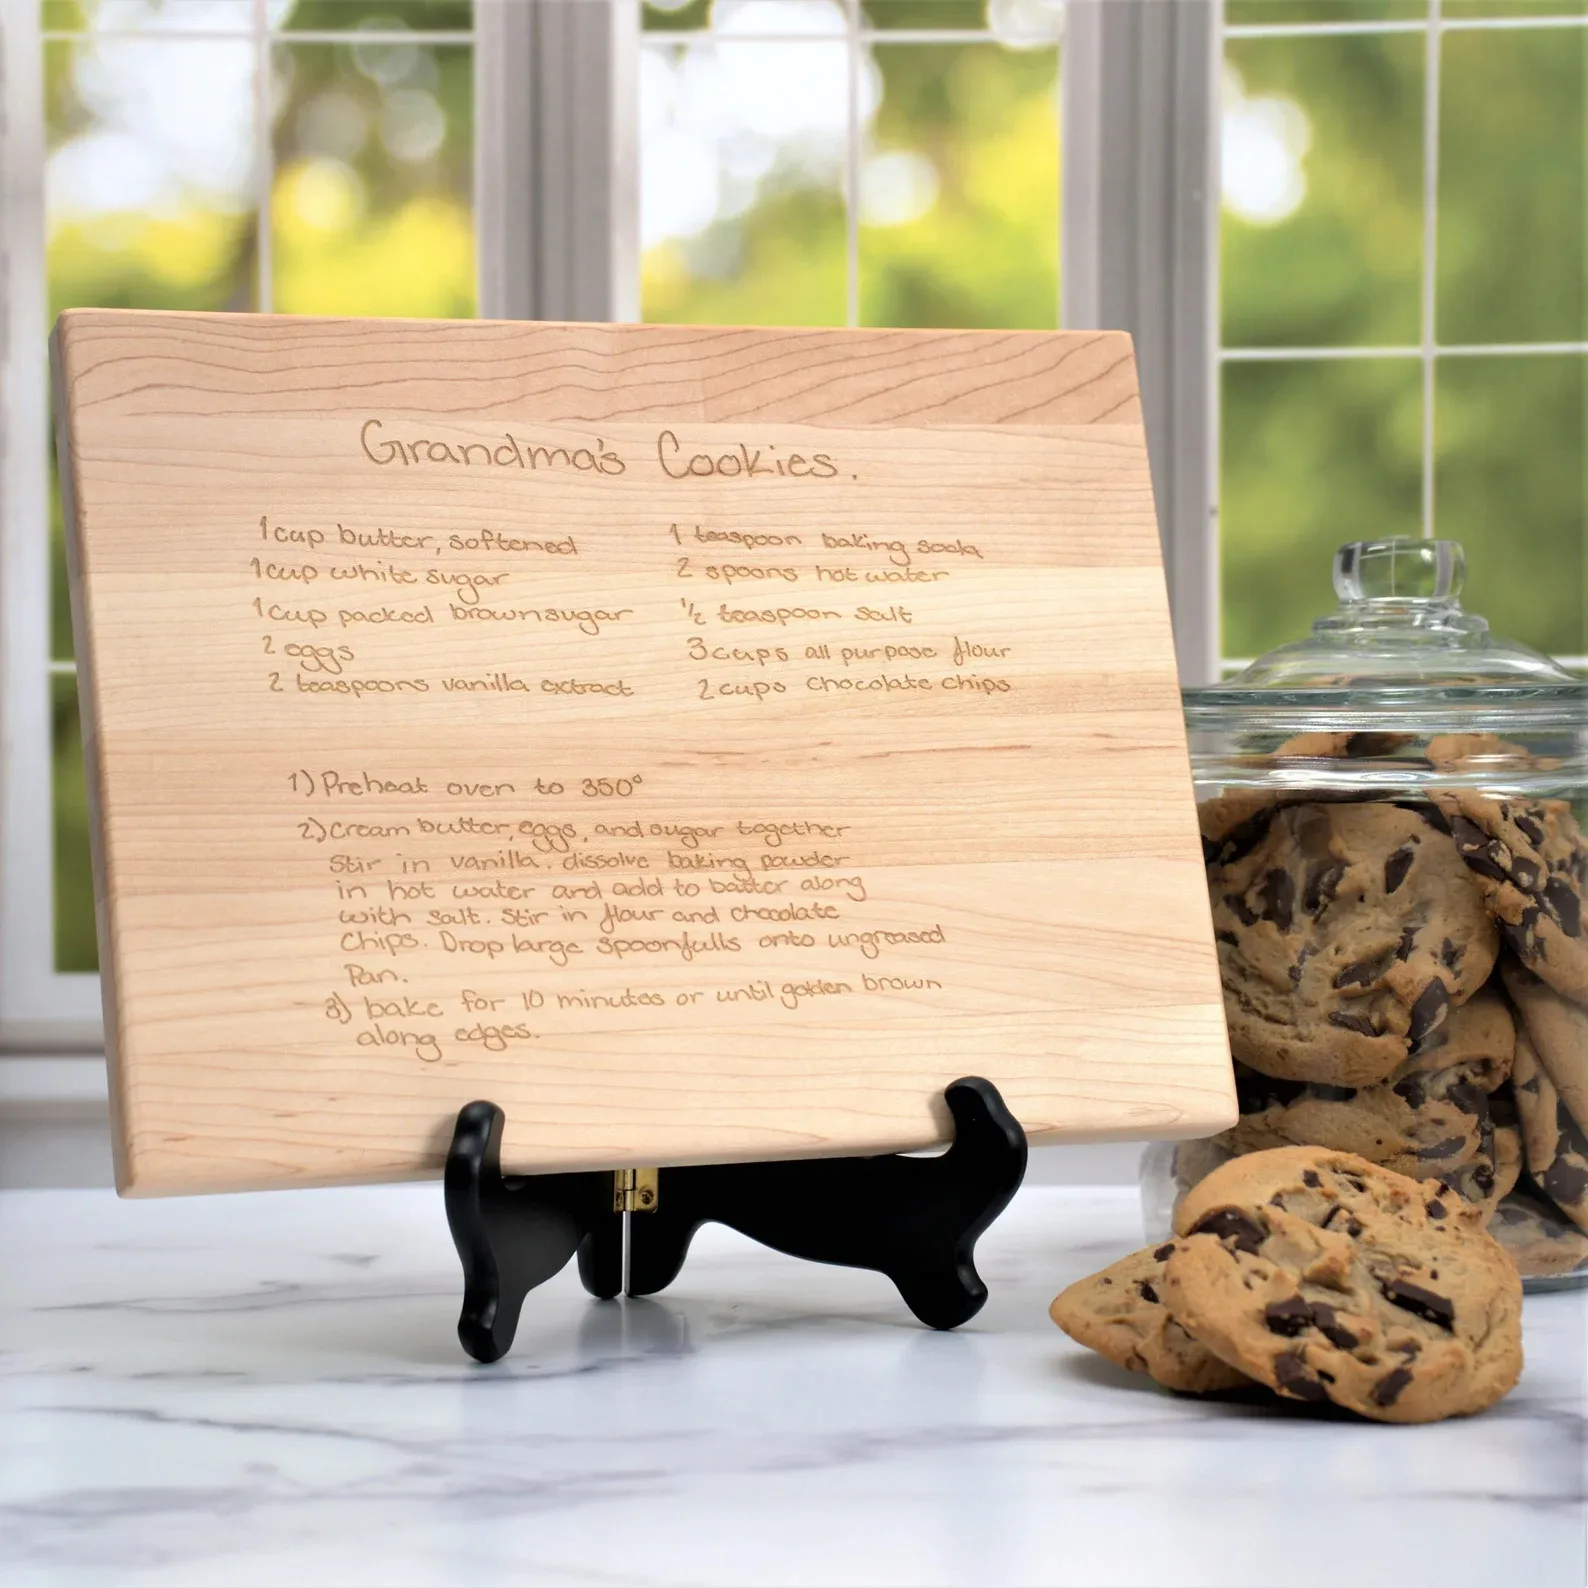 Grandma's Cookies.
1 cup butter, softened
1 cup white sugar
1 cup packed brown sugar
2 eggs
2 teaspoons vanilla extract
1 teaspoon baking soda
2 spoons hot water
½ teaspoon salt
3 cups all purpose flour
2 cups chocolate chips
1) Preheat oven to 350°
2) Cream butter, eggs, and sugar together
Stir in vanilla. dissolve baking powder
in hot water and add to batter along
with salt. Stir in flour and chocolate
Chips. Drop large spoonfulls onto ungreased
Pan.
3) bake for 10 minutes or until golden brown
along edges.